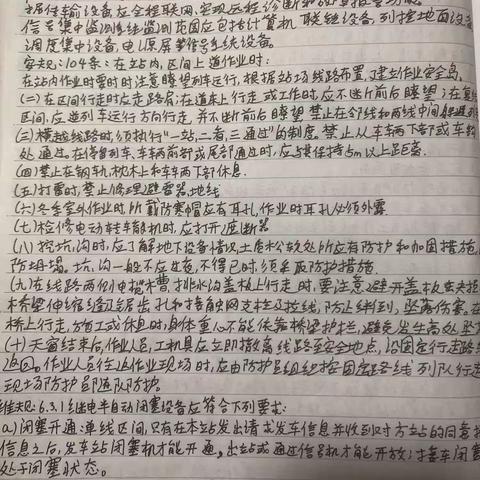 信号集中监测系统监测范围应包括计算机联锁设备,列控地面设备
调度集中设备,电源屏等信号系统设备。
安规:104条:在站内,区间上道作业时:
在站内作业时要时时注意瞭望列车运行,根据站场线路布置,建立作业安全岛。
(二)在区间行走时应走路肩;在道床上行走或工作时,应不断前后瞭望;在复线
区间,应逆列车运行方向行走,并不断前后瞭望,禁止在邻线和两线中间躲避列
(三)横越线路时须执行"一站,二看,三通过"的制度,禁止从车辆下部或车钩
处通过。在停留列车、车辆前部或尾部通过时,应与其保持5m以上距离.
(四)禁止在钢轨,枕木上和车辆下部休息.
(五)打雷时,禁止修理避雷器,地线
(六)冬季室外作业时,所戴防寒帽应有耳孔,作业时耳孔必须外露
(七)检修电动转辙机时,应打开遮断器
(八)挖坑,沟时,应了解地下设备情况,土质松软处所应有防护和加固措施,
防坍塌。坑,沟一般不应过夜,不得已时,须采取防护措施.
(九)在线路两侧电缆槽,排水沟盖板上行走时,要注意避开盖板
桥梁伸缩缝及锯齿孔和接触网支柱及拉线,防止绊倒,坠落伤害.在
桥上行走,施工或休息时,身体重心不能依靠桥梁护栏,避免发生高处坠
(十)天窗结束后,作业人员,工机具应立即撤离线路至安全地点,沿固定行走路线
返回。作业人员往返作业现场时,应由防护员组织按固定路线列队行走
现场防护员随队防护。
维规:6.3.1继电半自动闭塞设备应符合下列要求:
a)闭塞开通:单线区间,只有在本站发出请求发车信息并收到对方站的同意接
信息之后,发车站闭塞机才能开通,出站或通过信号机才能开放;接车闭塞
处于闭塞状态。